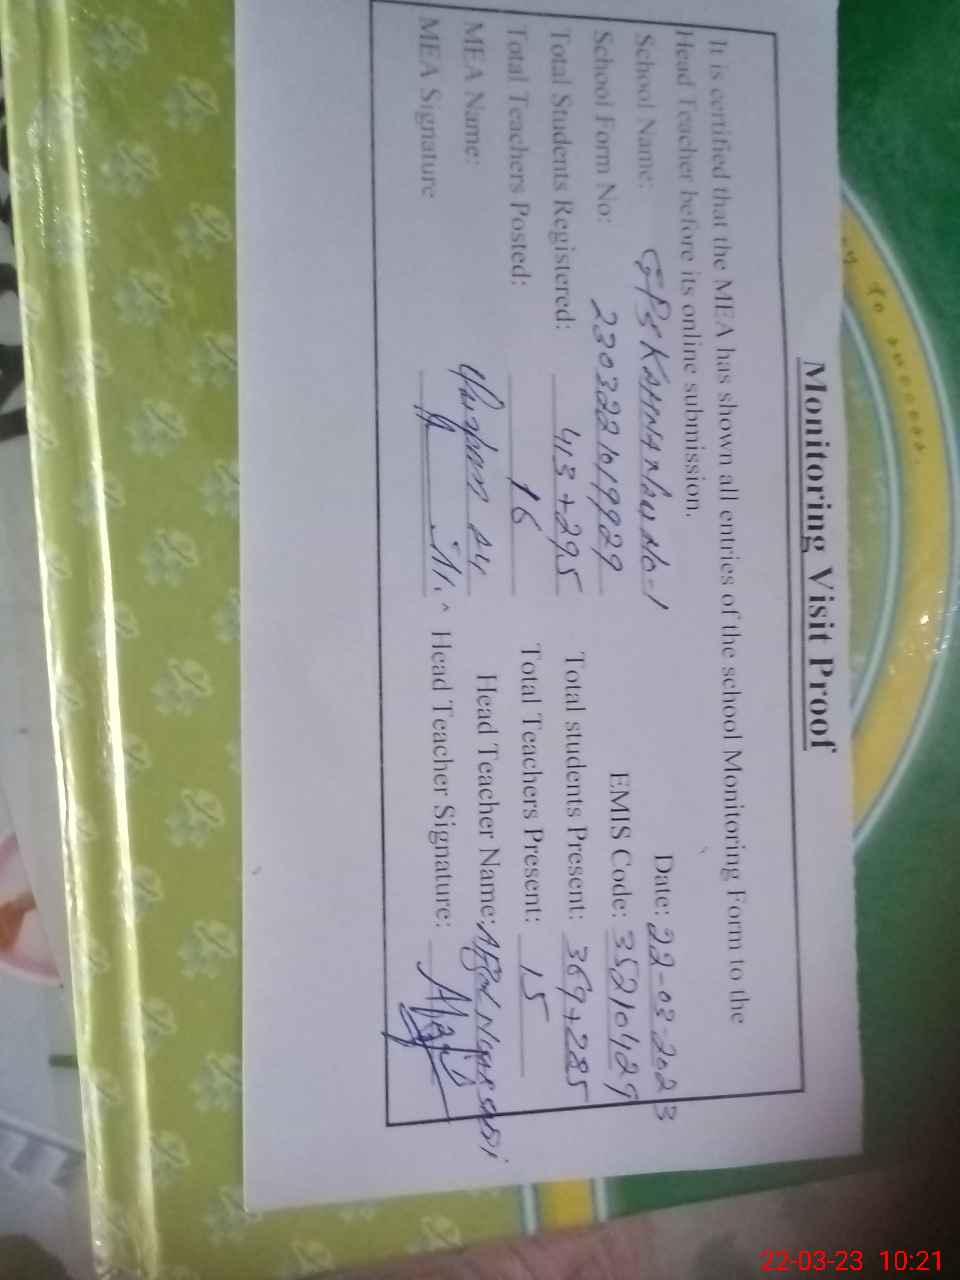 to success.
Monitoring Visit Proof
It is certified that the MEA has shown all entries of the school Monitoring Form to the
Head Teacher before its online submission.
Date: 22-03-2023
School Name: GPS
EMIS Code: 35210429
School Form No: 2303221019929
Total Students Registered: 413+295 Total students Present: 369+285
Total Teachers Posted: 16 Total Teachers Present: 15
MEA Name: Head Teacher Name: Afzal
MEA Signature Head Teacher Signature:
22-03-23 10:21